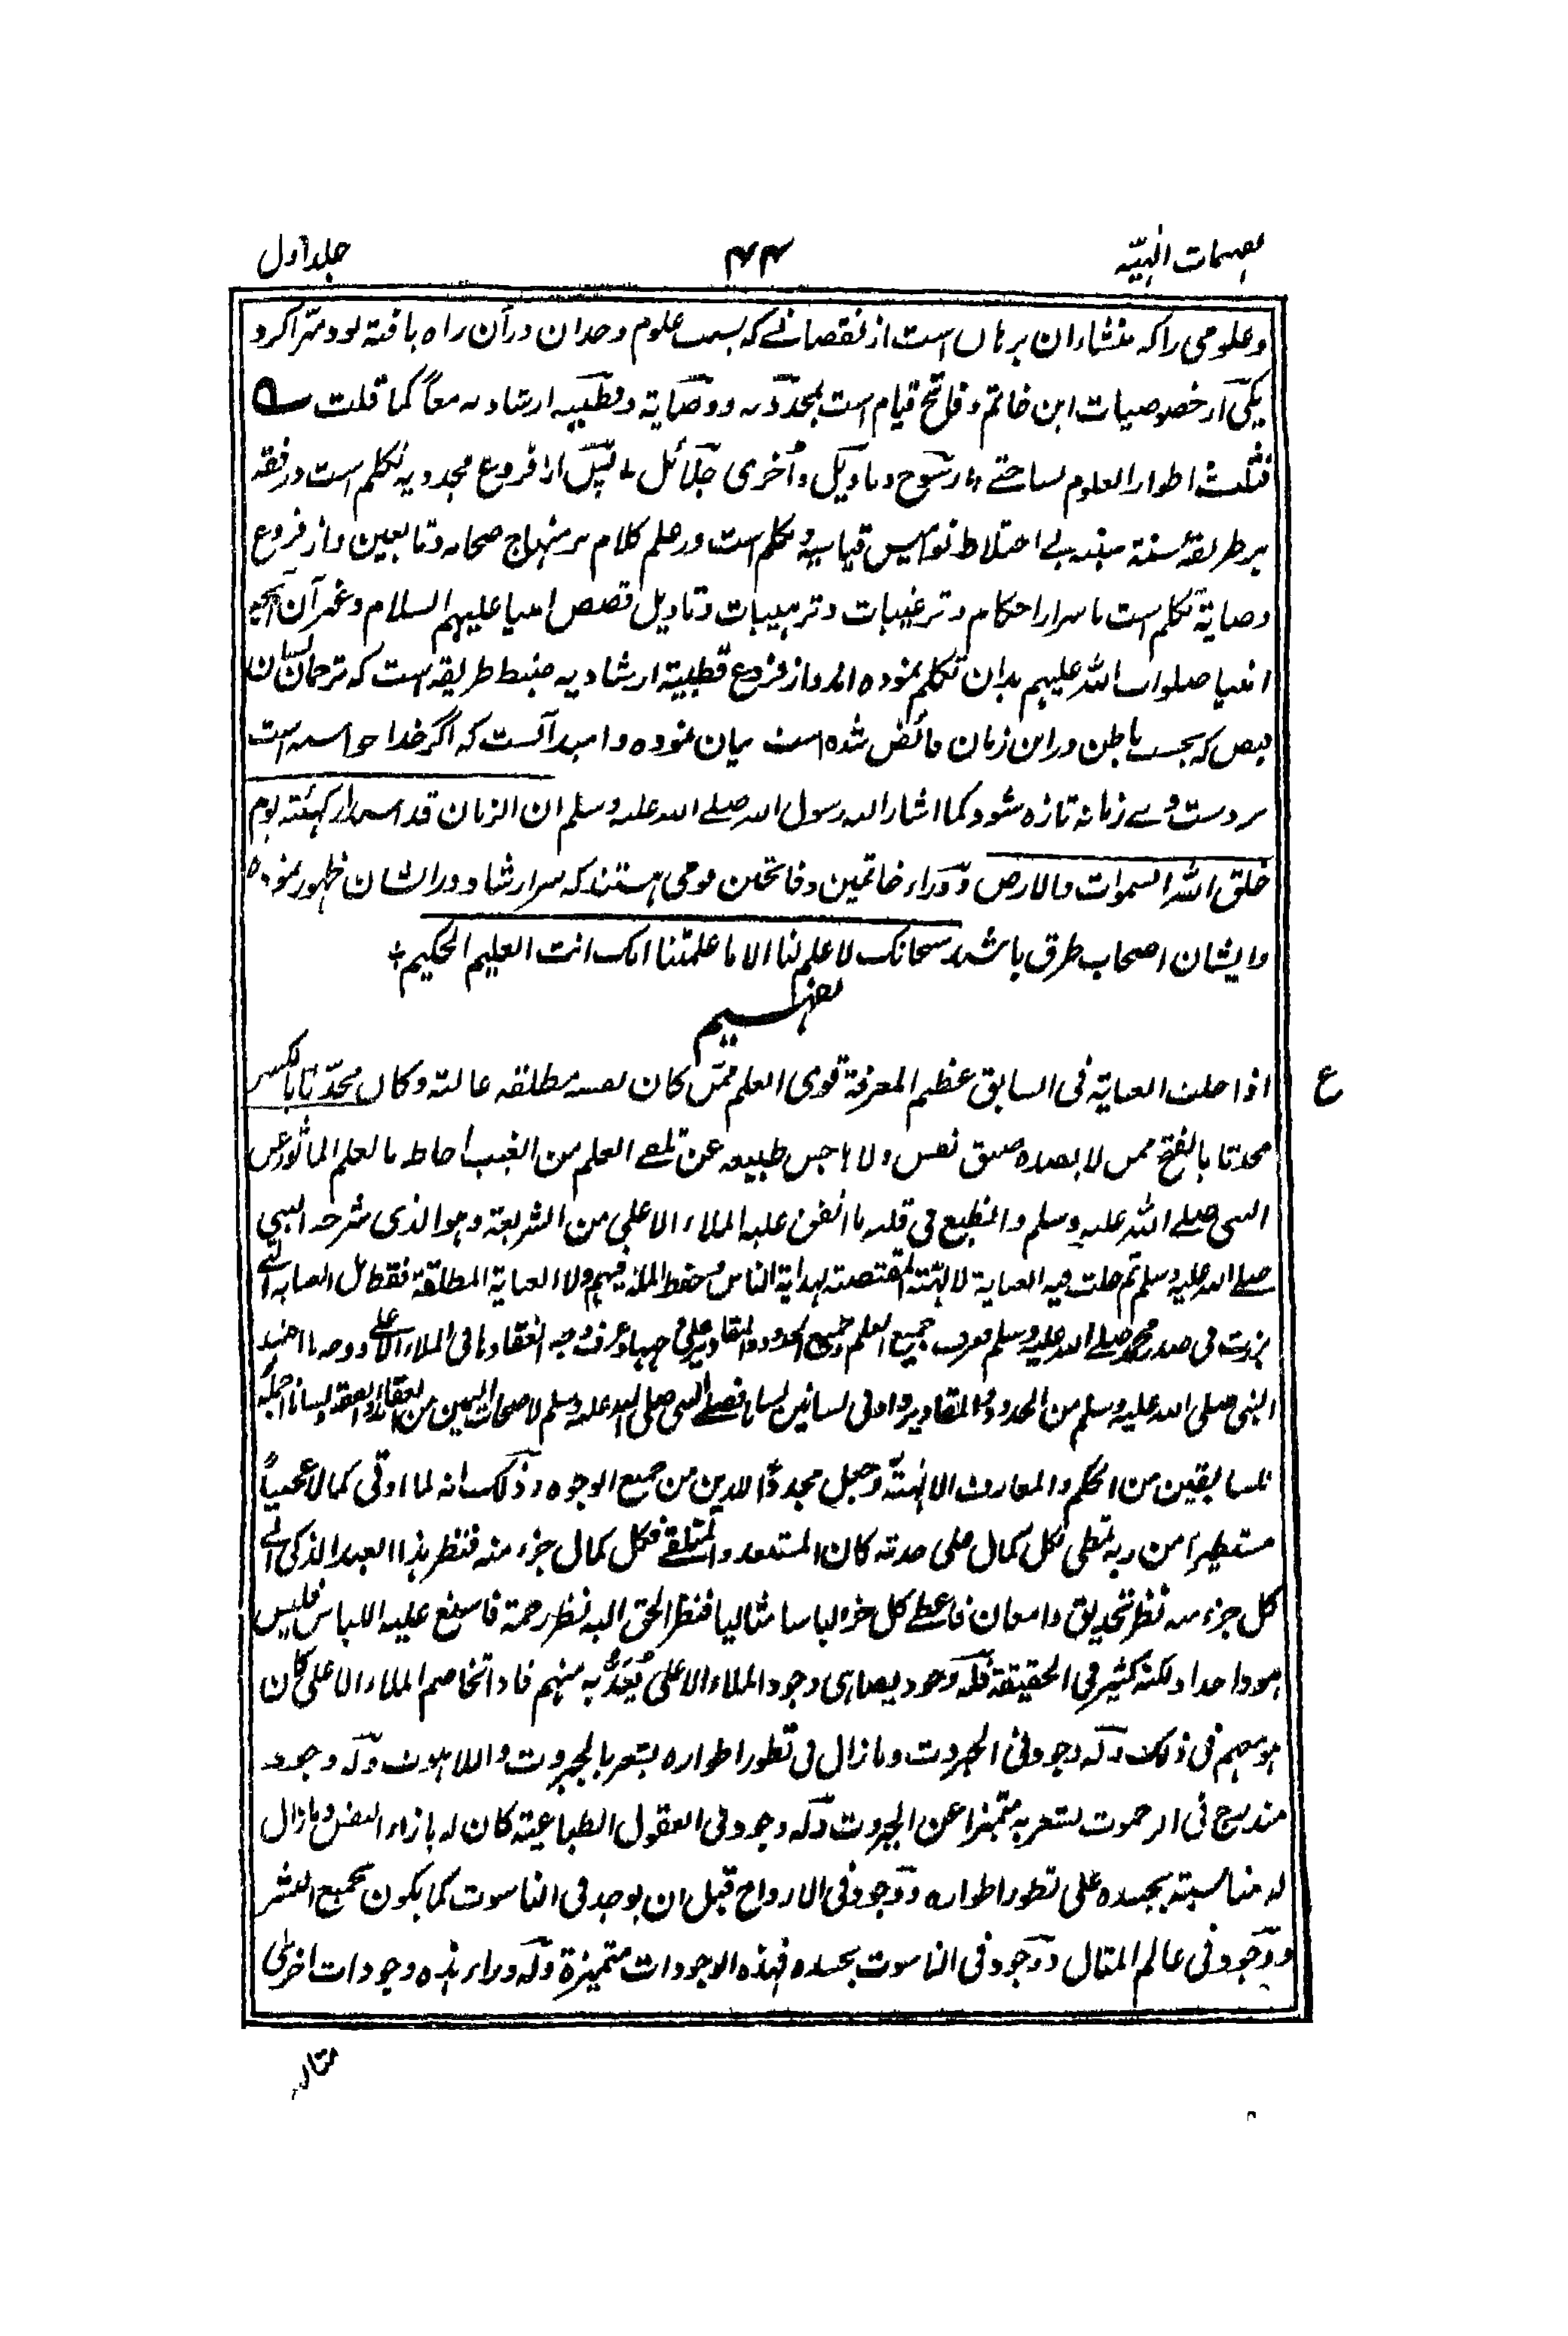 تفہیمات الہیہ ۴۴ جلد اول
وعلومی را کہ منشاء ان برہاں است از نقصانے کہ بسبب علوم وجدان درآن راہ یافتہ بود مبرّا کرد
یکی از خصوصیات این خاتم و فاتح قیام است بمجددیہ ووصایۃ وقطبیہ ارشادیہ معاً کما قلت
فثلث اطوار العلوم لساحتے رسوخ وتاویل وأخری جلائل پس از فروع مجددیہ تکلم است درفقہ
بر طریقۂ سنتہ بے اختلاط نوامیس قیاسیہ وتکلم است درعلم کلام بر منہاج صحابہ وتابعین واز فروع
وصایۃ تکلم است باسرار احکام وترغیبات وترہیبات وتاویل قصص انبیا علیہم السلام وغیر آن آنچہ
انبیا صلوات اللہ علیہم بدان تکلم نمودہ اند واز فروع قطبیۃ ارشادیہ ضبط طریقہ است کہ ترجمان لسان
فیض کہ بحسب باطن دراین زمان فائض شدہ است بیان نمودہ وامید آنست کہ اگر خدا خواستہ است
بر دست وے زمانہ تازہ شود کما اشار الیہ رسول اللہ صلے اللہ علیہ وسلم ان الزمان قد استدار کہیئتہ یوم
خلق اللہ السموات والارض ووراء خاتمین وفاتحین قومی ہستند کہ سر ارشاد در ایشان ظہور نمودہ
وایشان اصحاب طرق باشند سبحانک لا علم لنا الا ما علمتنا انک انت العلیم الحکیم
تفہیم
ع اذا حلت العنایۃ فی السابق عظیم المعرفۃ قوی العلم ممن کان نفسہ مطلقہ عالیۃ وکان محدّثا بالکسر
محدثا بالفتح ممن لا یصدہ ضیق نفس ولا ہاجس طبیعہ عن تلقے العلم من الغیب احاط بالعلم الماثور عن
النبی صلے اللہ علیہ وسلم وانطبع فی قلبہ ما اتفق علیہ الملاء الاعلی من الشریعۃ وہو الذی شرحہ النبی
صلے اللہ علیہ وسلم ثم حلت فیہ العنایۃ الالہیۃ المقتضیۃ بہدایۃ الناس وحفظ الملۃ فیہم ولا العنایۃ المطلقۃ فقط بل العنایۃ التے
برزت فی صدر محمد صلے اللہ علیہ وسلم فعرف جمیع العلم وجمیع الحدود والمقادیر وعرف وجہ انعقادہا فی الملاء الاعلے ووجہ ما اجتہد
النبی صلی اللہ علیہ وسلم من الحدود والمقادیر واوتی لسانین لسانا فصلے النبی صلی اللہ علیہ وسلم لاصحاب الیمین من العقائد والفقہ ولسانا اجملہ
للسابقین من الحکم والمعارف الالہیۃ وجعل مجددًا للدین من جمیع الوجوہ وذلک انہ لما اوتی کمالا عجیباً
مستطیراً من ربہ فحظی بکل کمال علی حدتہ کان المستعد والمتلقے فکل کمال جزء منہ فنظر ہذا العبد الذکی الے
کل جزء منہ نظر تحدیق وامعان فاعطے کل جزء لباسا مثالیا فنظر الحق الیہ نظر رحمۃ فاسبغ علیہ اللباس فلیس
ہو واحدا ولکنہ کثیر فی الحقیقۃ فلہ وجود یضاہی وجود الملاء الاعلی یُعَدُّ بہ منہم فاذا تخاصم الملاء الاعلی کان
ہو معہم فی ذلک ولہ وجود فی الجبروت وما زال فی تطور اطوارہ یشعر بالجبروت واللاہوت ولہ وجود
مندمج فی الرحموت یشعر بہ متمیزا عن الجبروت ولہ وجود فی العقول الطباعیۃ کان لہ بازاء الفیض وما زال
لہ مناسبتہ بجسدہ علی تطور اطوارہ ووجود فی الارواح قبل ان یوجد فی الناسوت کما یکون لجمیع البشر
ووجود فی عالم المثال ووجود فی الناسوت بجسدہ فہذہ الوجودات متمیزۃ ولہ وراء ہذہ وجودات اخری